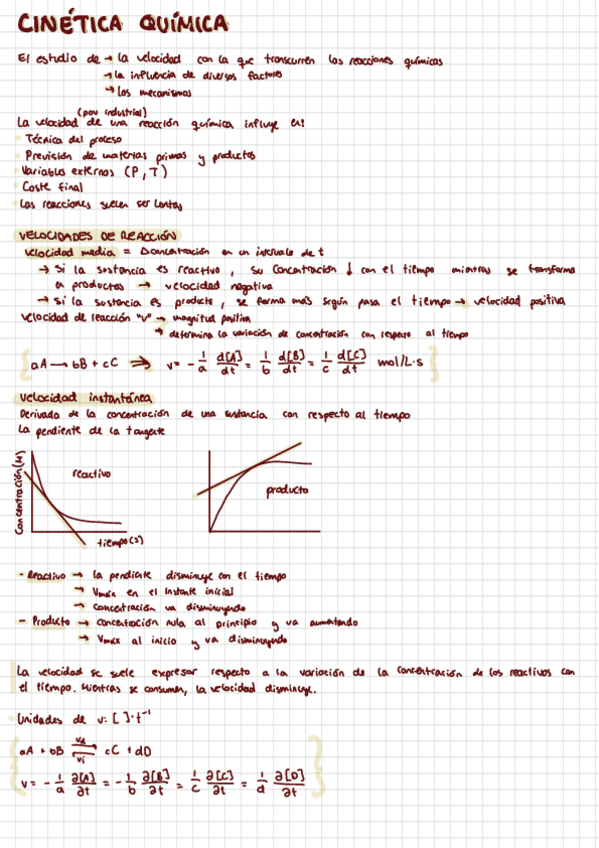 CINÉTICA QUÍMICA
El estudio de → la velocidad con la que transcurren las reacciones químicas
→ la influencia de diversos factores
→ los mecanismos
(pov industrial)
La velocidad de una reacción química influye en:
· Técnica del proceso
· Previsión de materias primas y productos
· Variables externas (P, T)
· Coste final
· Las reacciones suelen ser lentas
VELOCIDADES DE REACCIÓN
Velocidad media = Δconcentración en un intervalo de t
→ Si la sustancia es reactivo, su concentración ↓ con el tiempo mientras se transforma
en productos → velocidad negativa
→ Si la sustancia es producto, se forma más según pasa el tiempo → velocidad positiva
Velocidad de reacción "v" → magnitud positiva
→ determina la variación de concentración con respecto al tiempo
aA → bB + cC ⇒ v = - 1/a d[A]/dt = 1/b d[B]/dt = 1/c d[C]/dt mol/L·s
Velocidad instantánea
Derivada de la concentración de una sustancia con respecto al tiempo
La pendiente de la tangente
Concentración (M)
reactivo
producto
tiempo (s)
- Reactivo → la pendiente disminuye con el tiempo
→ Vmáx en el instante inicial
→ concentración va disminuyendo
- Producto → concentración nula al principio y va aumentando
→ Vmáx al inicio y va disminuyendo
La velocidad se suele expresar respecto a la variación de la concentración de los reactivos con
el tiempo. Mientras se consumen, la velocidad disminuye.
· Unidades de v: [ ]·t⁻¹
aA + bB ⇌ cC + dD
v = - 1/a ∂[A]/∂t = - 1/b ∂[B]/∂t = 1/c ∂[C]/∂t = 1/d ∂[D]/∂t